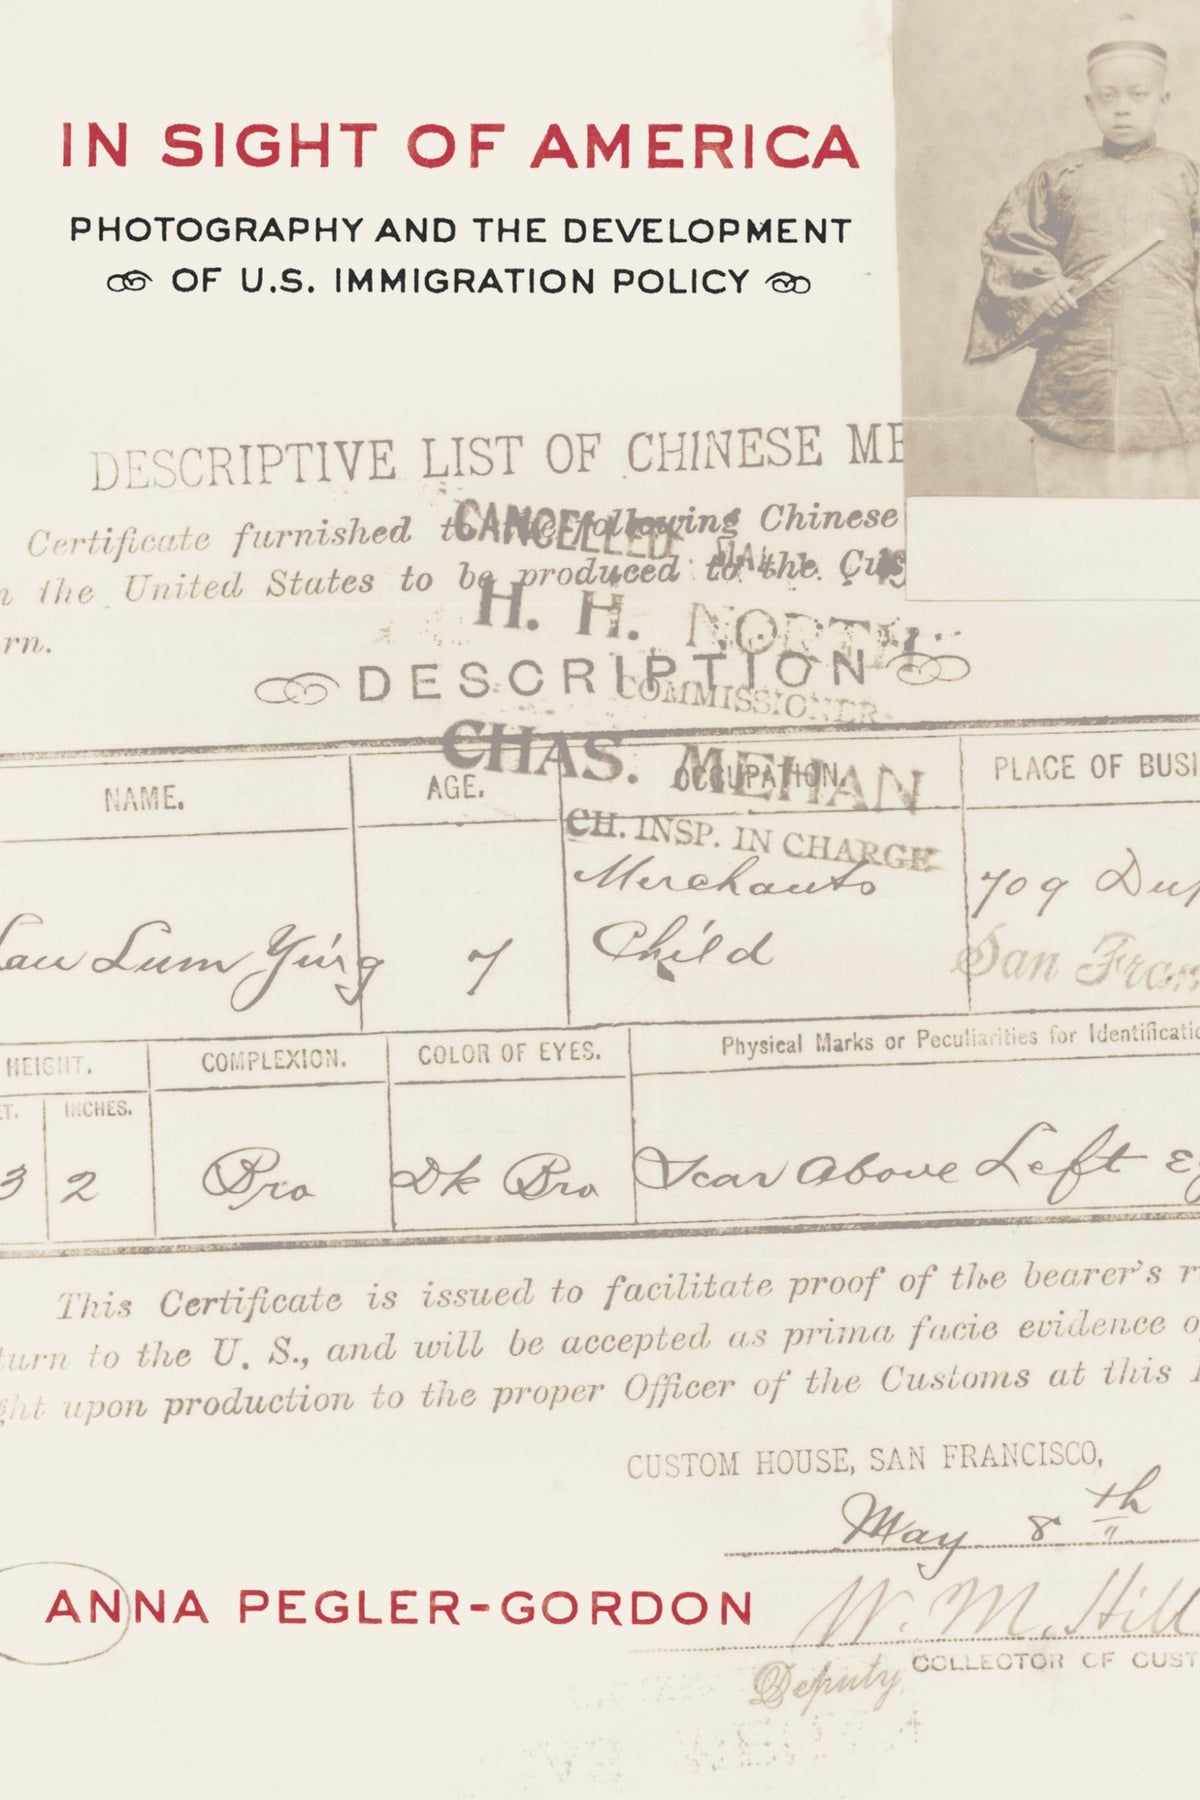 IN SIGHT OF AMERICA
PHOTOGRAPHY AND THE DEVELOPMENT
OF U.S. IMMIGRATION POLICY
DESCRIPTIVE LIST OF CHINESE ME
Certificate furnished to the following Chinese
CANCELLED
n the United States to be produced to the Cus
rn.
H. H. NORTH,
DESCRIPTION
COMMISSIONER
CHAS. MEHAN
CH. INSP. IN CHARGE
NAME. AGE. OCCUPATION. PLACE OF BUSI
Lau Lum Ying 7 Merchants 709 Dup
Child San Fran
HEIGHT. COMPLEXION. COLOR OF EYES. Physical Marks or Peculiarities for Identificatio
ET. INCHES.
3 2 Bro Dk Bro Scar Above Left Ey
This Certificate is issued to facilitate proof of the bearer's r
turn to the U. S., and will be accepted as prima facie evidence o
ght upon production to the proper Officer of the Customs at this
CUSTOM HOUSE, SAN FRANCISCO,
May 8th
ANNA PEGLER-GORDON
W. M. Hill
Deputy COLLECTOR OF CUST